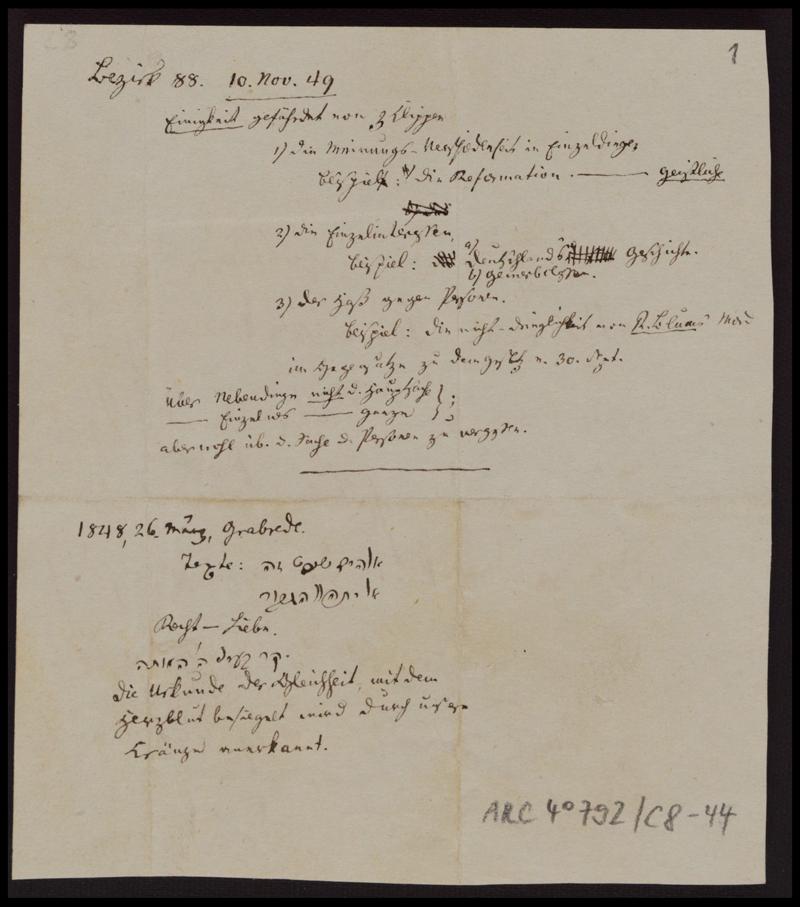 C8
1
Bezirk 88. 10. Nov. 49
Einigkeit gefährdet von 3 Klippen
1) die Meinungs-Verschiedenheit in Einzeldingen
Beispiel: die Reformation. — geistliche
2) die Einzelinteressen,
Beispiel: a) Deutschlands Geschichte.
b) Gewerbe
3) Der Haß gegen Personen.
Beispiel: die nicht- von R. Blums
im Gegensatze zu dem Gesetz v. 30. Sept.
über Nebendinge nicht d. Hauptsache
— Einzelnes — Ganze
aber wohl üb. d. Sache d. Personen zu vergessen.
1848, 26. März, Grabrede.
Texte: אלהים שופט זה
Recht — Liebe.
יקר בעיני ה' המותה
Die Urkunde der Gleichheit, mit dem
Herzblut besiegelt wird durch unsere
Kränze anerkannt.
ARC 4° 792/C8-44